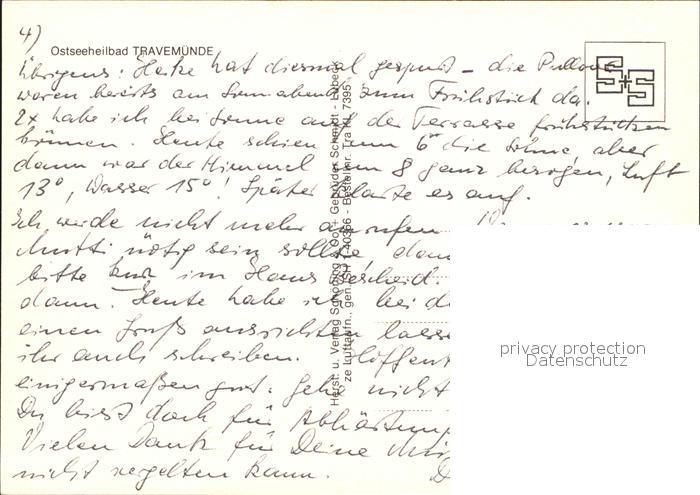 4)
Ostseeheilbad TRAVEMÜNDE
Übrigens: Heike hat diesmal gespurt – die Pullover
waren bereits am Sonnabend zum Frühstück da.
2x habe ich bei Sonne auf der Terrasse frühstücken
können. Heute schien um 6° die Sonne, aber
dann war der Himmel um 8 ganz bezogen, Luft
13°, Wasser 15°! Später klarte es auf.
Ich werde nicht mehr anrufen.
Mutti nötig sein sollte, dann
bitte kurz im Haus Bescheid.
dann. Heute habe ich bei
einen Gruß ausrichten lassen
ihr auch schreiben. Hoffent
einigermaßen gut. Gehe nicht
Du bist doch für Abhärtung
Vielen Dank für Deine
nicht vergelten kann. D
S+S
Herst. u. Verlag Schöning & Co + Gebrüder Schmidt - Lübeck
privacy protection
Datenschutz